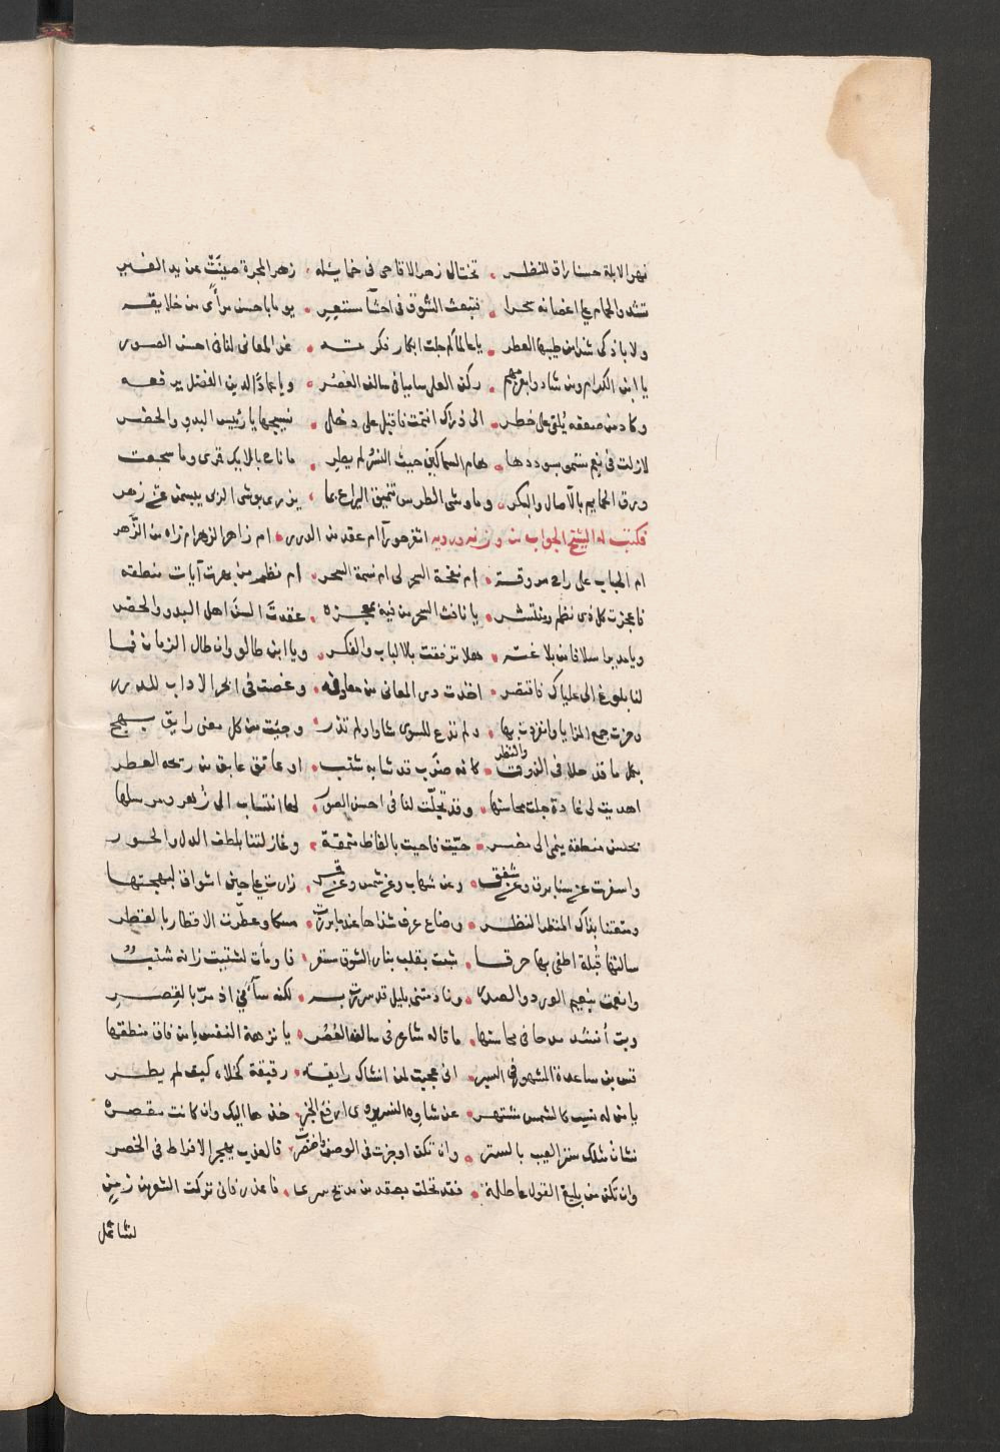 نهر الابلة حسنا راق للنظر . تختال زهر الاقاحى فى خمايله . زهر المجرة صينت عن يد الغير
تشدو الحمام على اغصانه سحرا . فتبعث الشوق فى احشا مستعر . يوما باحسن مرأى من خلايقه
ولا باذكى شذا من طيبها العطر . يا عالما لم جلت ابكار فكرته . غر المعانى لنا فى احسن الصور
يا ابن الكرام ومن شادوا بعزمهم . ركن العلى ساميا فى سالف العصر . ويا عماد الدين الفضل يرفعه
وكاد من ضعفه يلقى على خطر . الى ذراك انتمت فاقبل على دخل . نسيجها يا رئيس البدو والحضر
لازلت فى نعم ستمى بسوددها . هام السماكين حيث النسر لم يطر . ما ناح بالايك قمرى وما سجعت
ورق الحمايم بالآصال والبكر . وما وشى الطرس تنميق اليراع بما . يزرى بوشى الربى يبسمن عن زهر
فكتب له الشيخ الجواب من وزنه ورويه اثغر حور آم عقد من الدرر . ام زاهر الزهر ام زاه من الزهر
ام الحباب على راح مروقة . ام نفخة السحر لى ام نسمة السحر . ام نظم من بهرت آيات منطقه
فاعجزت كل ذى نظم ومنتشر . يا نافث السحر من فيه بمعجزه . عقدت السن اهل البدو والحضر
ويا مديرا سلافا من بلاغته . هلا ترفقت بالالباب والفكر . ويا ابن طالو وان طال الزمان فما
لنا بلوغ الى علياك فاقتصر . اخذت در المعانى من معادنه . وغصت فى ابحر الاداب للدرر
وحزت جمع المزايا وانفردت بها . ولم تدع للسوى شاوا ولم تذر . وجئت من كل معنى رايق بهج
بكل ما قد حلا فى الذوق والنظر . كانه ضرب قد شابه شنب . او عاتق عابق من ريحه العطر
اهديت لى غادة جلت محاسنها . وقد تجلت لنا فى احسن الصور . لها انتساب الى زهر ومرسلها
بحسن منطقه ينمى الى مضر . حيت فاحيت بالفاظ منمقة . وغازلتنا بلطف الدل والحور
واسفرت عن سنا برق وعن شفق . وعن شهاب وعن شمس وعن قمر . زارت على حين اشواق لبهجتها
ومتعتنا بذاك المنظر النضر . وضاع عرف شذاها عندما برزت . مسكا وعطرت الاقطار بالقطر
سالتها قبلة اطفى بها حرقا . شبت بقلب بنار الشوق مستعر . فاومأت لشتيت زانه شنب
وانعمت بنعيم الورد والصدر . ونادمتنى بليل قد سررت به . لكنه سآنى اذ مر بالقصر
وبت أنشد مدحا فى محاسنها . ما قاله شاعر فى سالف العصر . يا نزهة النفس يا من فاق منطقها
قس بن ساعدة المشهور فى السير . انى عجبت لمن انشاك رايقة . رقيقة كيف لم يطر
يا من له نسب كالشمس مشتهر . خذها اليك وان كانت مقصره
فشان مثلك ستر العيب بالستر . وان تكن اوجزت فى الوصف واختصرت . فالعذب يهجر الافراط فى الخصر
وان تكن من بليغ القول عاطلة . فقد تحلت بصدق من مديح سرى . فاعذر فانى تركت الشعر من زمن
لشاغل